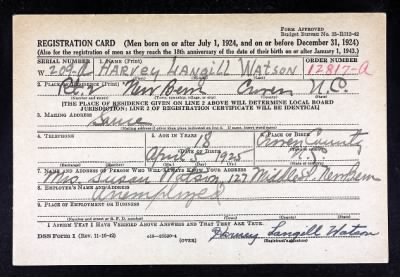 Form Approved
Budget Bureau No. 33-R012-42
REGISTRATION CARD (Men born on or after July 1, 1924, and on or before December 31, 1924)
(Also for the registration of men as they reach the 18th anniversary of the date of their birth on or after January 1, 1943.)
SERIAL NUMBER 1. NAME (Print) ORDER NUMBER
W 209-A HARVEY LANGILL WATSON 12817-A
2. PLACE OF RESIDENCE (Print)
New Bern Craven N.C.
[THE PLACE OF RESIDENCE GIVEN ON LINE 2 ABOVE WILL DETERMINE LOCAL BOARD
JURISDICTION; LINE 2 OF REGISTRATION CERTIFICATE WILL BE IDENTICAL]
3. MAILING ADDRESS
Same
[Mailing address if other than place indicated on line 2. If same, insert word same]
4. TELEPHONE 5. AGE IN YEARS 6. PLACE OF BIRTH
18 Craven County
DATE OF BIRTH
April 5 1925 N.C.
7. NAME AND ADDRESS OF PERSON WHO WILL ALWAYS KNOW YOUR ADDRESS
Mrs Susan Watson, 127 Middle St. New Bern
8. EMPLOYER'S NAME AND ADDRESS
Unemployed
9. PLACE OF EMPLOYMENT OR BUSINESS
(Number and street or R. F. D. number) (Town) (County) (State)
I AFFIRM THAT I HAVE VERIFIED ABOVE ANSWERS AND THAT THEY ARE TRUE.
DSS Form 1 (Rev. 11-16-42) (OVER) Harvey Langill Watson
(Registrant's signature)